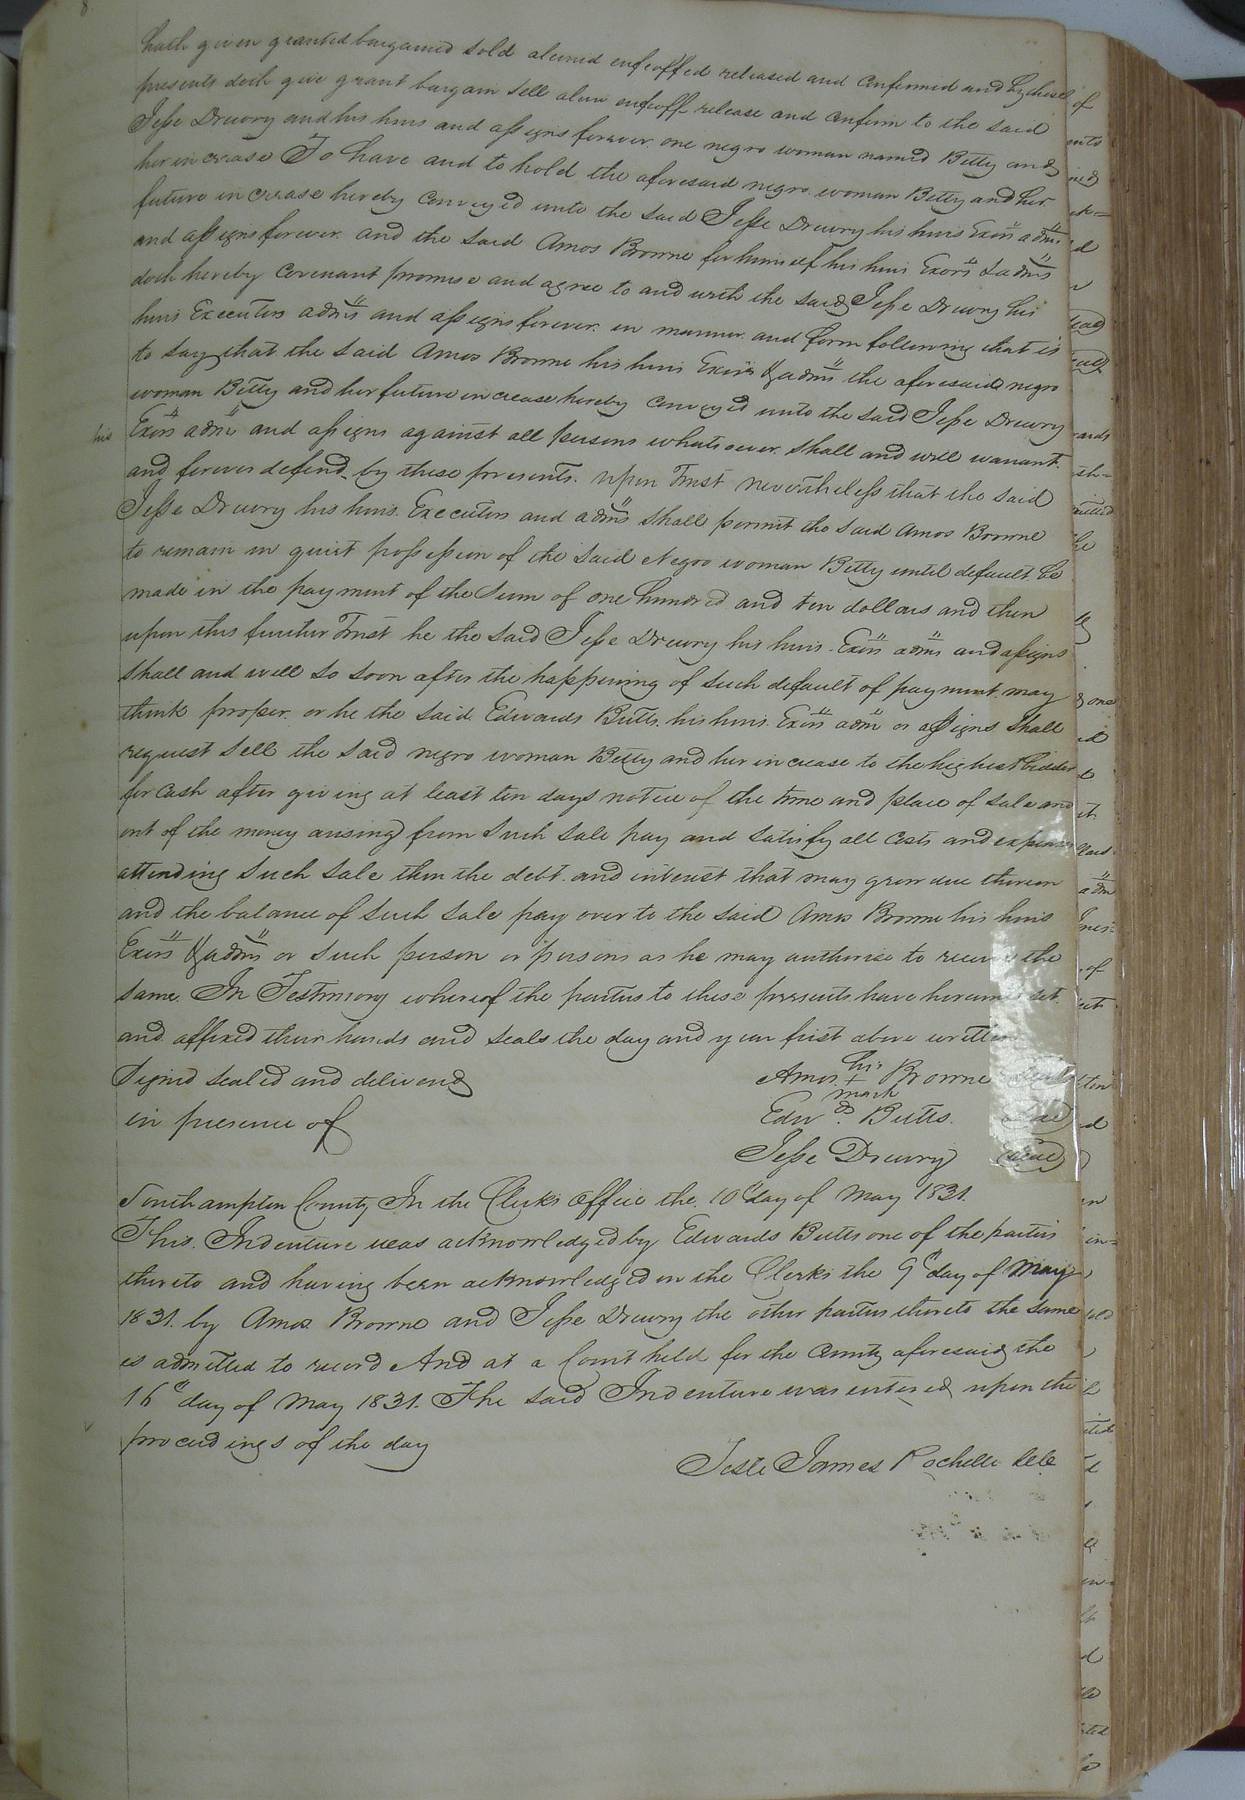 8
hath given granted bargained sold aliened enfeoffed released and confirmed and by these
presents doth give grant bargain sell alien enfeoff release and confirm to the said
Jesse Drewry and his heirs and assigns forever one negro woman named Betty and
her increase To have and to hold the aforesaid negro woman Betty and her
future increase hereby conveyed unto the said Jesse Drewry his heirs Exors admrs
and assigns forever. and the said Amos Browne for himself his heirs Exors & admrs
doth hereby covenant promise and agree to and with the said Jesse Drewry his
heirs Executors admrs and assigns forever in manner and form following that is
to say that the said Amos Browne his heirs Exors & admrs the aforesaid negro
woman Betty and her future increase hereby conveyed unto the said Jesse Drewry
his Exors admrs and assigns against all persons whatsoever shall and will warrant
and forever defend by these presents. upon Trust nevertheless that the said
Jesse Drewry his heirs. Executors and admrs shall permit the said Amos Browne
to remain in quiet possession of the said Negro woman Betty until default be
made in the payment of the Sum of one hundred and ten dollars and then
upon this further Trust he the said Jesse Drewry his heirs. Exors admrs and assigns
shall and will so soon after the happening of such default of payment may
think proper. or he the said Edwards Butts, his heirs. Exors admrs or assigns shall
request sell the said negro woman Betty and her increase to the highest bidder
for cash after giving at least ten days notice of the time and place of sale and
out of the money arising from such sale pay and satisfy all costs and expenses
attending such sale then the debt. and interest that may grow due thereon
and the balance of such sale pay over to the said Amos Browne his heirs
Exors & admrs or such person or persons as he may authorise to receive the
same. In Testimony whereof the parties to these presents have hereunto set
and affixed their hands and seals the day and year first above written
Signed sealed and delivered
in presence of
Amos his + mark Browne seal
Edwds. Butts. seal
Jesse Drewry seal
Southampton County In the Clerks office the 10th day of May 1831.
This Indenture was acknowledged by Edwards Butts one of the parties
thereto and having been acknowledged in the Clerks the 9th day of May
1831. by Amos Browne and Jesse Drewry the other parties thereto the same
is admitted to record And at a Court held for the county aforesaid the
16th day of May 1831. The said Indenture was entered upon the
proceedings of the day
Teste James Rochelle